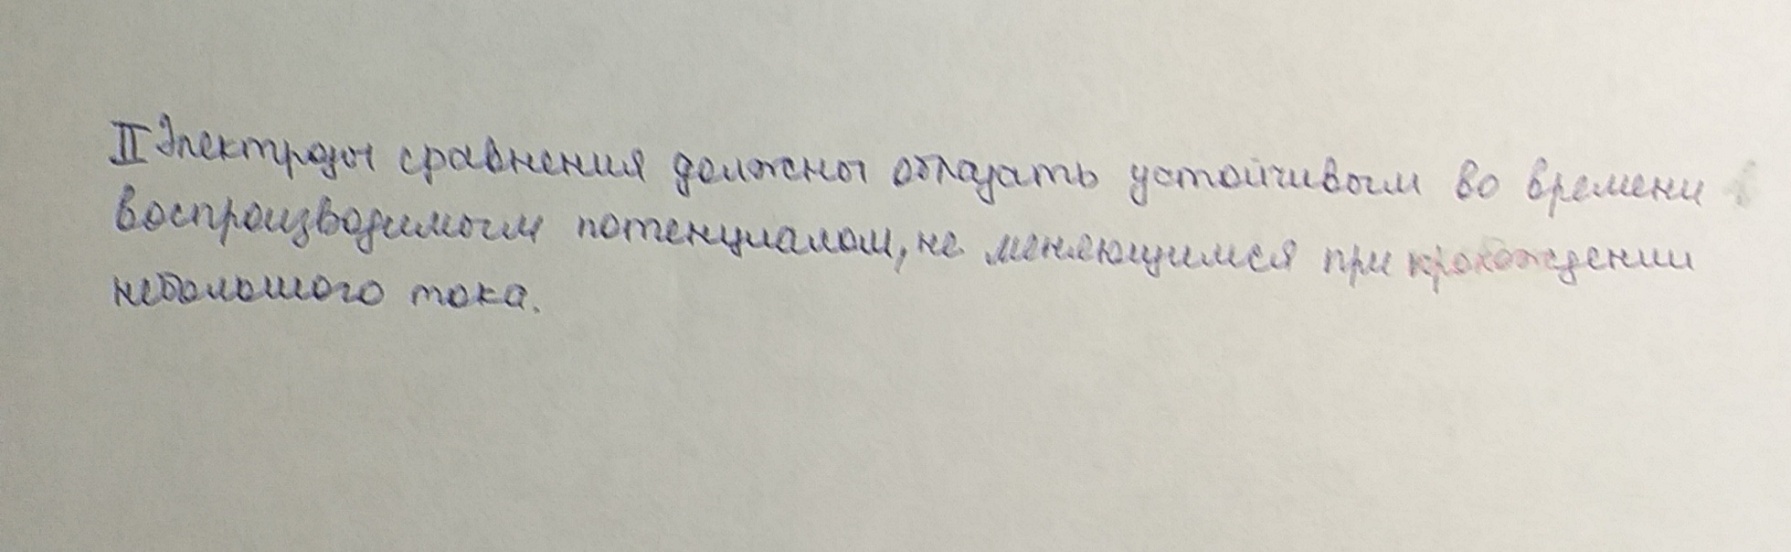 II Электроды сравнения должны обладать устойчивым во времени
воспроизводимым потенциалом, не меняющимся при прохождении
небольшого тока.